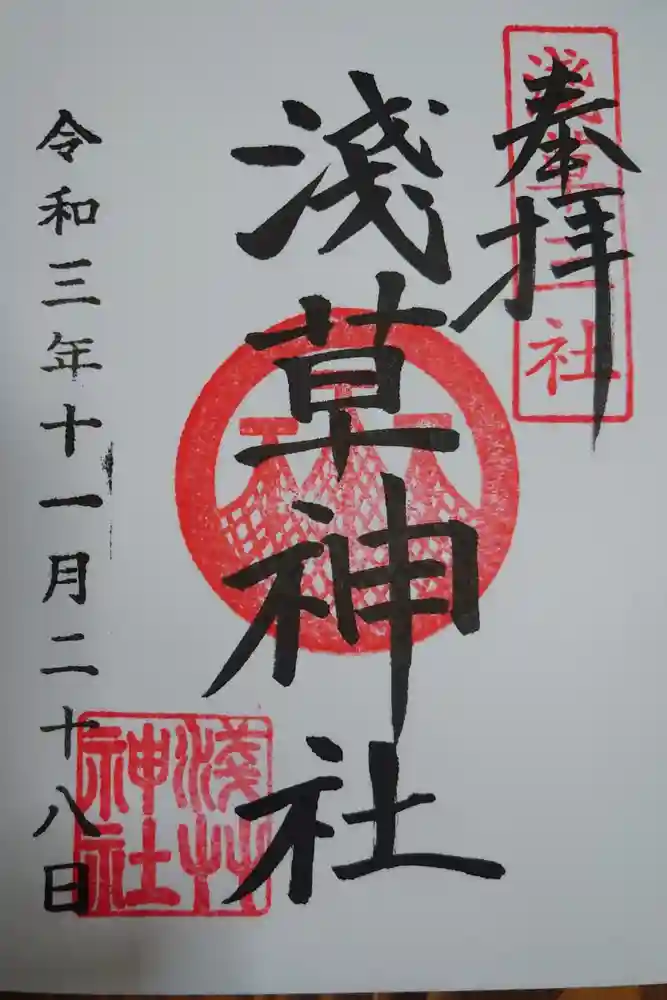 奉拝
浅草三社
淺草神社
令和三年十一月二十八日
淺艸
神社